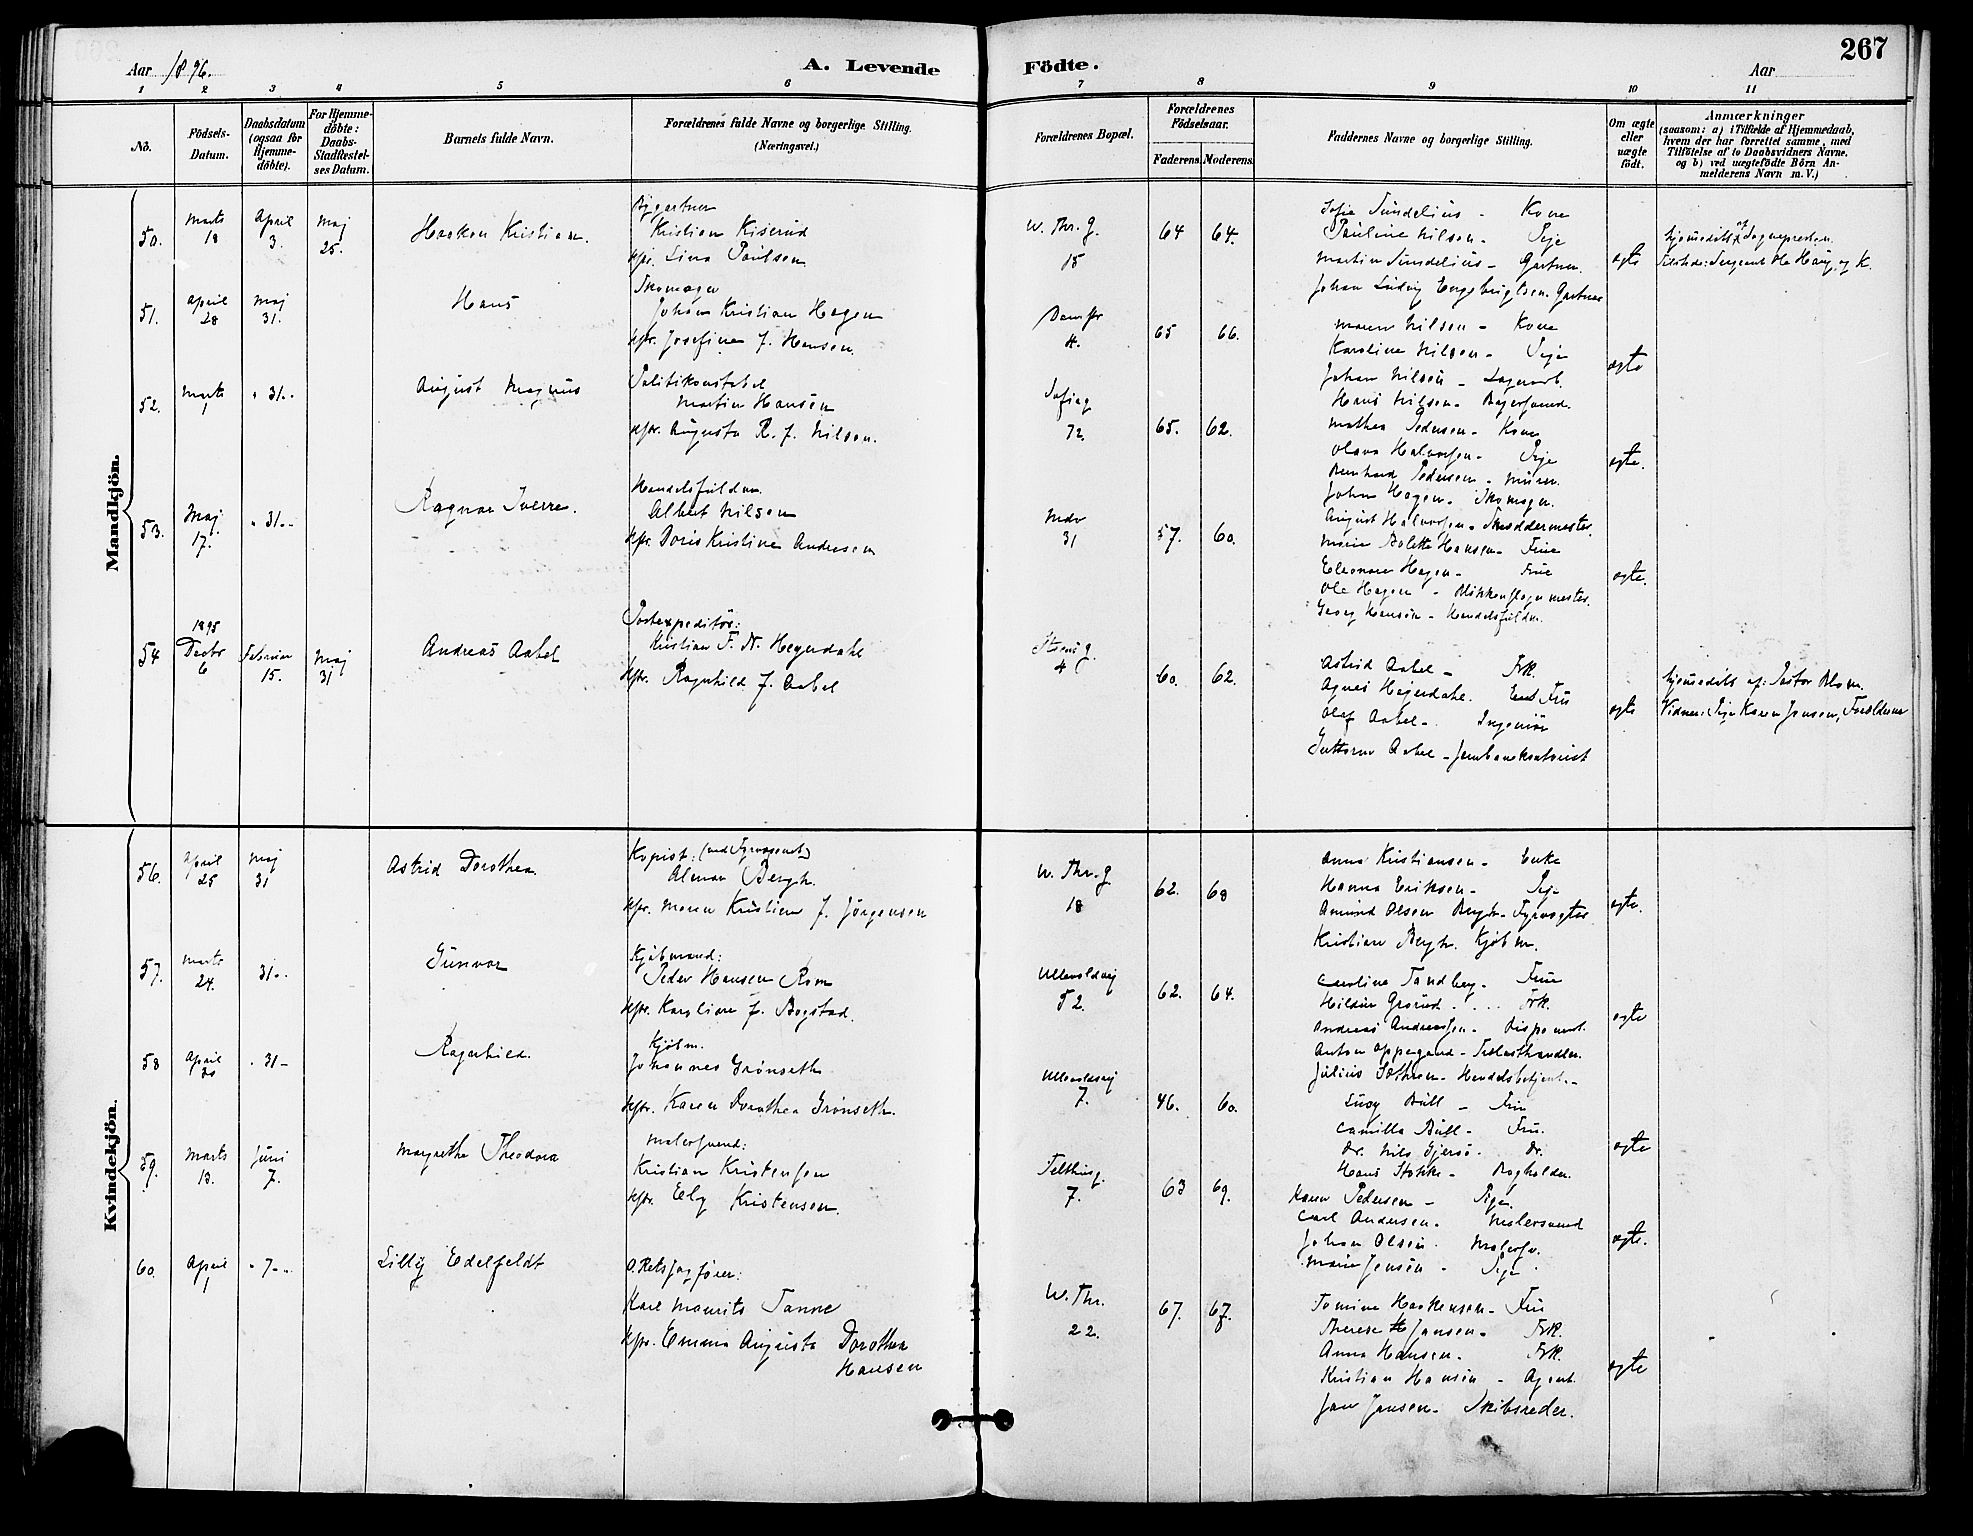 267
Aar 1896.
A. Levende
Födte.
Aar
1 2 3 4 5 6 7 8 9 10 11
No.
Födsels-
Datum.
Daabsdatum
(ogsaa for
Hjemme-
döbte).
For Hjemme-
döbte:
Daabs-
Stadfæstel-
ses Datum.
Barnets fulde Navn.
Forældrenes fulde Navne og borgerlige Stilling.
(Næringsvei.)
Forældrenes Bopæl.
Forældrenes
Födselsaar.
Faderens. Moderens.
Faddernes Navne og borgerlige Stilling.
Om ægte
eller
uægte
födt.
Anmærkninger
(saasom: a) i Tilfælde af Hjemmedaab,
hvem der har forrettet samme, med
Tilföielse af to Daabsvidners Navne,
og b) ved uægtefödte Börn An-
melderens Navn m. V.)
Mandkjön.
50.
Marts
18
April
3.
Maj
25.
Haakon Kristian.
Kristian Kiserud
Hfr. Lina Paulsen
W. Thr. G.
15
64 64.
Sofie Sundelius - Kone
Pauline Nilsen - Pige
Martin Sundelius - Gartner.
Johan Ludvig Engebrigtsen. Gartner
ægte
hjemedøbt af Sognepresten.
51.
April
28
Maj
31.
Hans
Skomager
Johan Kristian Hagen
Hfr. Josefine f. Hansen.
4.
65 66.
Maren Nilsen - Kone
Karoline Nilsen - Pige
Johan Nilsen - Lagerarb.
Hans Nilsen - Bagersvend.
ægte
52.
Marts
1
" 31. -
August Magnus
Politikonstabel
Martin Hansen
Hfr. Augusta R. f. Nilsen.
Sofieg
72
65. 62.
Mathea Pedersen - Kone
Olava Halvorsen - Pige
Bernhard Pedersen - Murer.
Johan Hagen - Skomager.
ægte.
53.
Maj
17.
" 31. -
Ragnar Sverre.
Handelsfuldm.
Albert Nilsen
Hfr. Doris Kristine Andersen
31
57. 60.
August Halvorsen - Skræddermester.
Marie Bolette Hansen - Frue
Eleonore Hagen - Frue
Ole Hagen - Blikkenslagermester.
Georg Hansen - Handelsfuldm.
ægte.
54
1895
Decbr
6
Februar
15.
Maj
31
Andreas Aabel
Postexpeditør:
Kristian F. N. Hegerdahl
Hfr. Ragnhild f. Aabel
4
60. 62.
Astrid Aabel - Frk.
Agnes Hejerdahl. Fru
Olaf Aabel - Ingeniør
Guttorm Aabel - Jernbanekontorist
ægte
hjemedøbt af: Pastor Blom.
Vidner: Pige Karen Jensen, Forældrene
Kvindekjön.
56.
April
25
Maj
31
Astrid Dorothea.
Kopist: (ved Fyrvæsenet)
Almar Bergh.
Hfr. Maren Kristine f. Jørgensen
W. Thr. g
18
62. 68
Anna Kristiansen - Enke
Hanna Eriksen - Pige
Amund Olsen Bergh - Fyrvogter
Kristian Bergh. Kjøbm.
ægte.
57.
Marts
24.
31. -
Gunvor
Kjøbmand:
Peder Hansen Rom
Hfr. Karoline f. Bogstad.
Ullevoldvej
52.
62. 64.
Caroline Tandberg - Frue
Hildur Grorud - Frk.
Andreas Andreassen - Disponent.
Anton Oppegaard - Trælasthandler.
Julius Sæthren - Handelsbetjent. -
ægte
58
April
20
" 31 -
Ragnhild.
Kjøbm.
Johannes Grønseth
Hfr. Karen Dorothea Grønseth.
Ullevoldsvej
7.
46. 60.
Lucy Bull - Fru
Camilla Bull - Fru.
Dr. Nils Gjersø. Dr.
Hans Stokke - Bogholder.
ægte
59.
Marts
13.
Juni
7.
Margrethe Theodora
Malersvend:
Kristian Kristensen
Hfr. Ely Kristensen.
Telthusg.
7.
63 69.
Karen Pedersen - Pige.
Carl Andersen. Malersvend
Johan Olsen. Malersv.
Marie Jensen - Pige
ægte.
60.
April
1
" 7. -
Lilly Edelfeldt
O. Retssagfører:
Karl Maurits Tanne
Hfr. Emma Augusta Dorothea
Hansen
W. Thr.
22.
67. 67.
Tomine Haakensen - Fru
Therese H Jansen - Frk.
Anna Hansen. Frk.
Kristian Hansen - Agent.
Jan Jansen - Skibsreder.
ægte